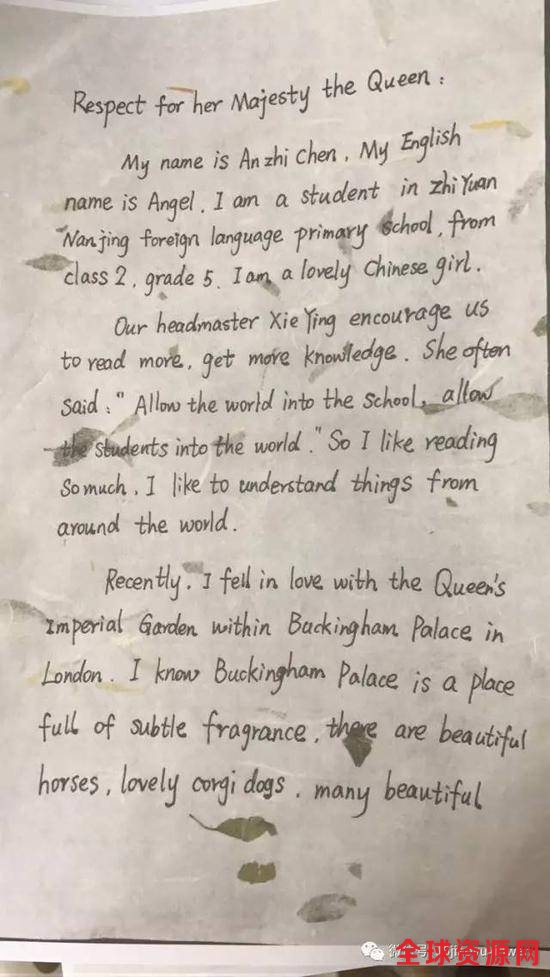 Respect for her Majesty the Queen :
My name is Anzhi Chen. My English
name is Angel. I am a student in zhiYuan
Nanjing foreign language primary school, from
class 2, grade 5. I am a lovely Chinese girl.
Our headmaster Xie Ying encourage us
to read more, get more knowledge. She often
said : " Allow the world into the school, allow
the students into the world." So I like reading
So much. I like to understand things from
around the world.
Recently. I fell in love with the Queen's
Imperial Garden within Buckingham Palace in
London. I know Buckingham Palace is a place
full of subtle fragrance, there are beautiful
horses, lovely corgi dogs. many beautiful
全球资源网